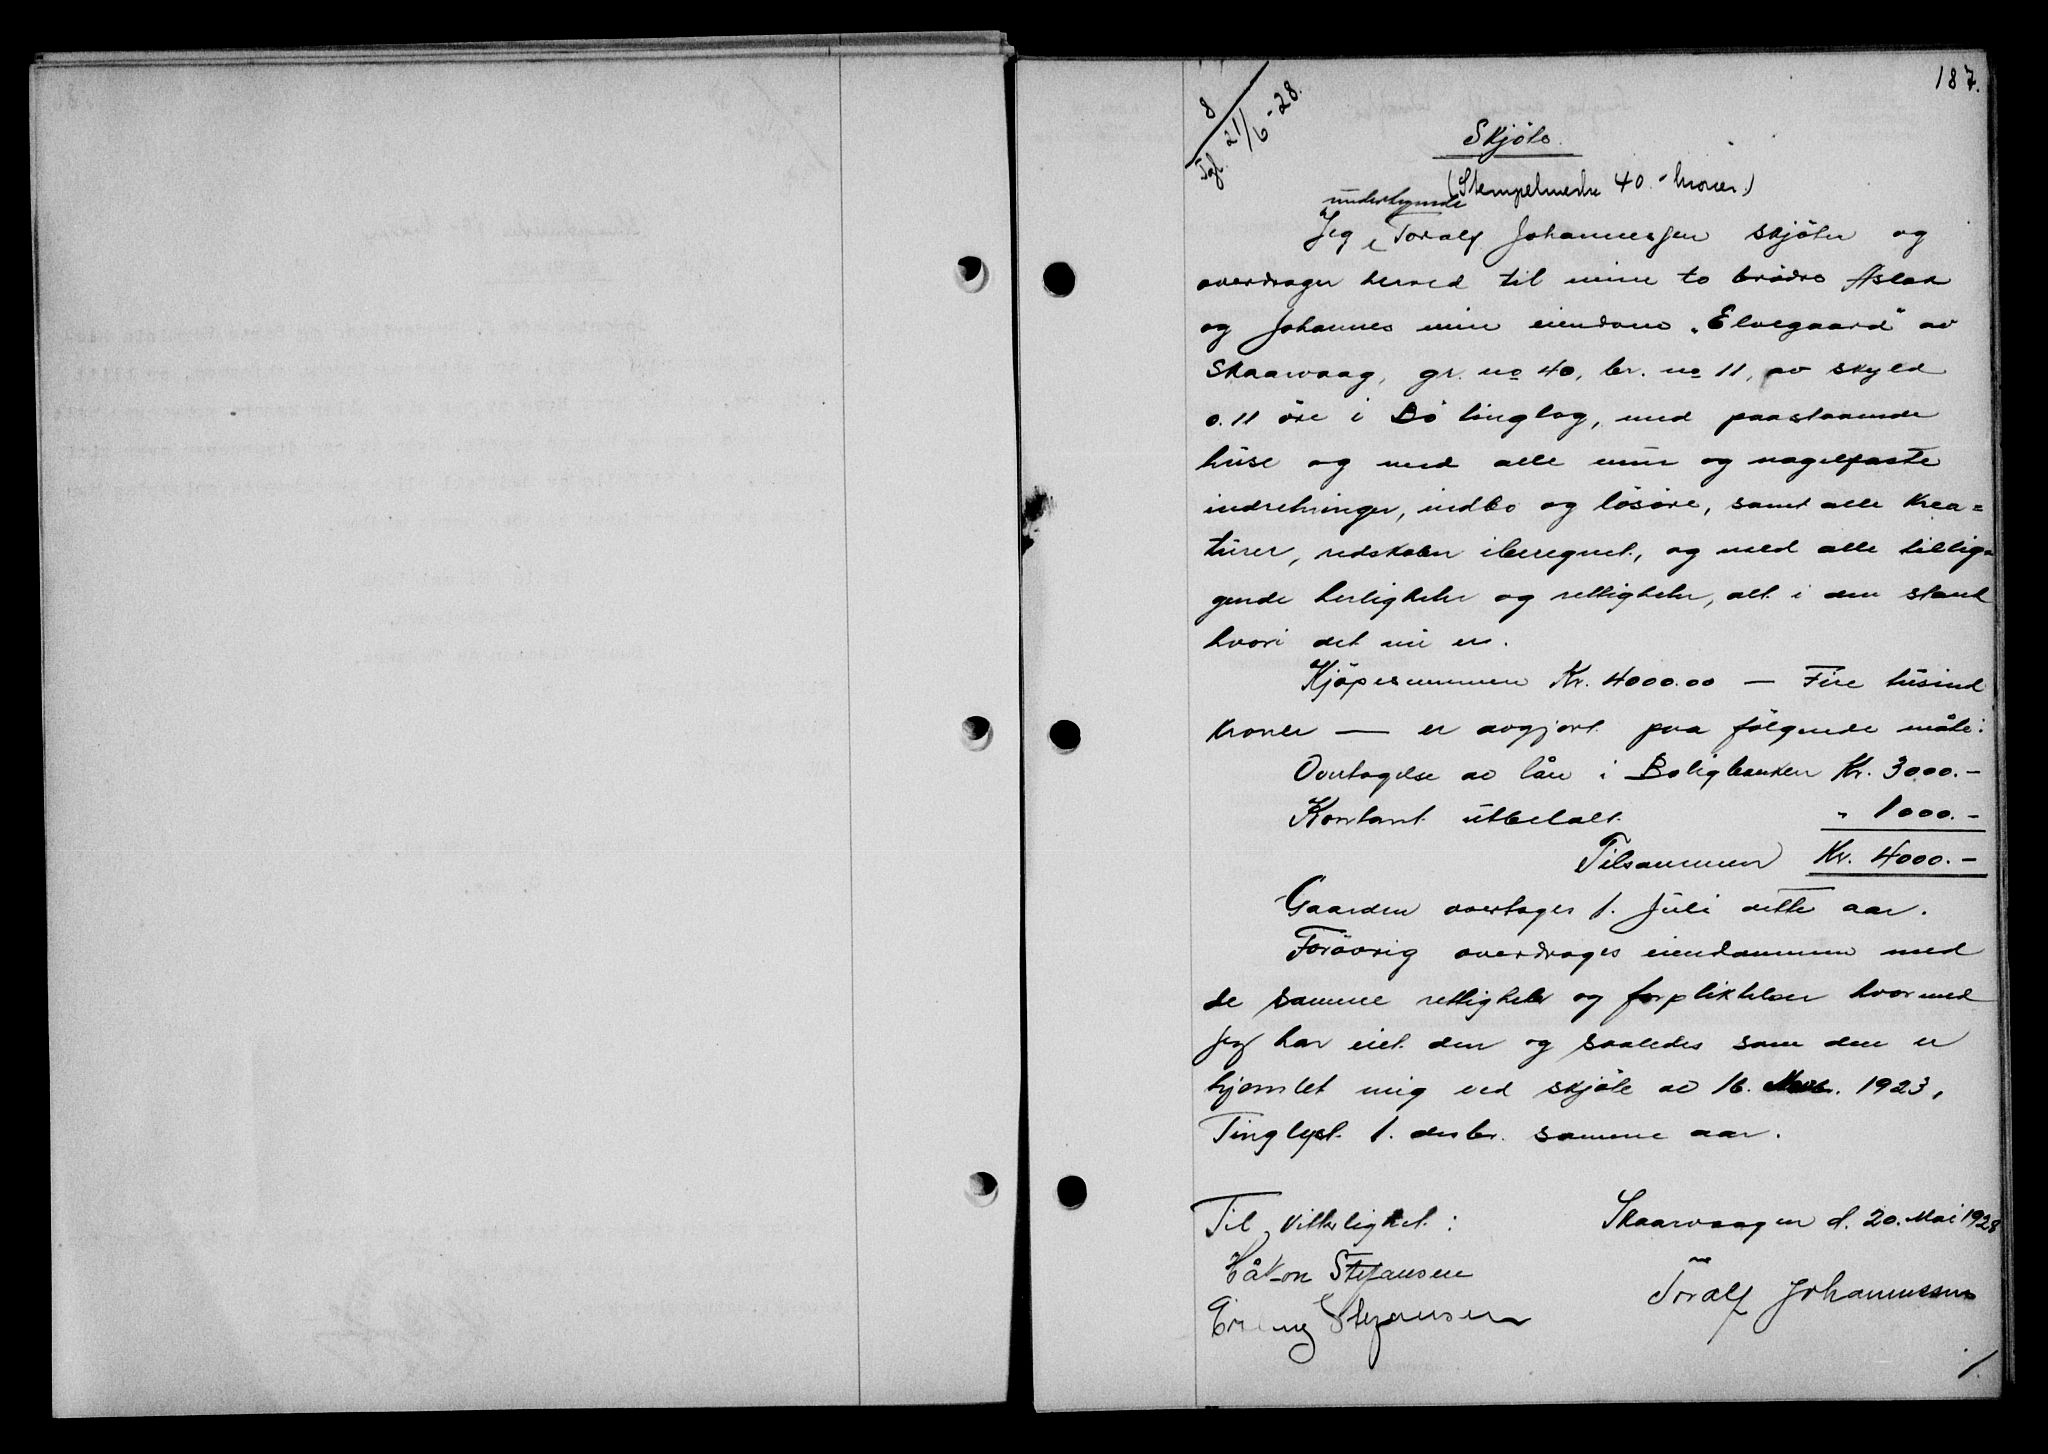 187.
8
Tgl. 21/6-28.
Skjöte.
(Stempelmerke 40.- kroner.)
undertegnede
Jeg, Toralf Johannessen skjöter og
overdrager herved til mine to brödre Aslak
og Johannes min eiendom "Elvegaard" av
Skaarvaag, gr. no 40, br. no 11, av skyld
0.11 öre i Bö tinglag, med paastaaende
huse og med alle mur og nagelfaste
indretninger, indbo og lösöre, samt alle krea=
turer, redskaber iberegnet, og med alle tillig-
gende herligheter og rettigheter, alt i den stand
hvori det nu er.
Kjöpesummen Kr. 4000.00 — Fire tusind
kroner — er avgjort paa fölgende måte:
Overtagelse av lån i Boligbanken Kr. 3000.-
Kontant utbetalt " 1000.-
Tilsammen Kr. 4000.-
Gaarden overtages 1. juli dette aar.
Forövrig overdrages eiendommen med
de samme rettigheter og forpliktelser hvormed
jeg har eiet den og saaledes som den er
hjemlet mig ved skjöte av 16. Novb. 1923,
Tinglyst 1. desbr. samme aar.
Til Vitterlighet: Skaarvaagen d. 20. Mai 1928
Håkon Stefansen
Toralf Johannessen
Erling Stefansen
1.